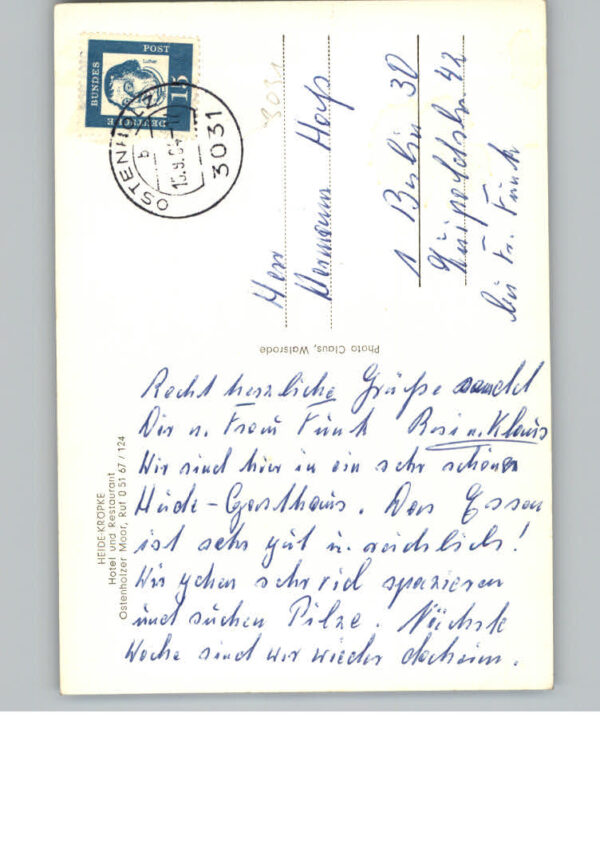 DEUTSCHE
BUNDES
POST
15
Luther
OSTENHOLZ
b
15.9.64
3031
3031
Herr
Hermann
1 Berlin 30
Luitpoldstr. 42
bei Fr. Funk
Photo Claus, Walsrode
HEIDE-KRÖPKE
Hotel und Restaurant
Ostenholzer Moor, Ruf 0 51 67 / 124
Recht herzliche Grüße sendet
Dir u. Frau Funk Rosi u. Klaus
Wir sind hier in ein sehr schönen
Heide-Gasthaus. Das Essen
ist sehr gut u. reichlich!
Wir gehen sehr viel spazieren
und suchen Pilze. Nächste
Woche sind wir wieder daheim.